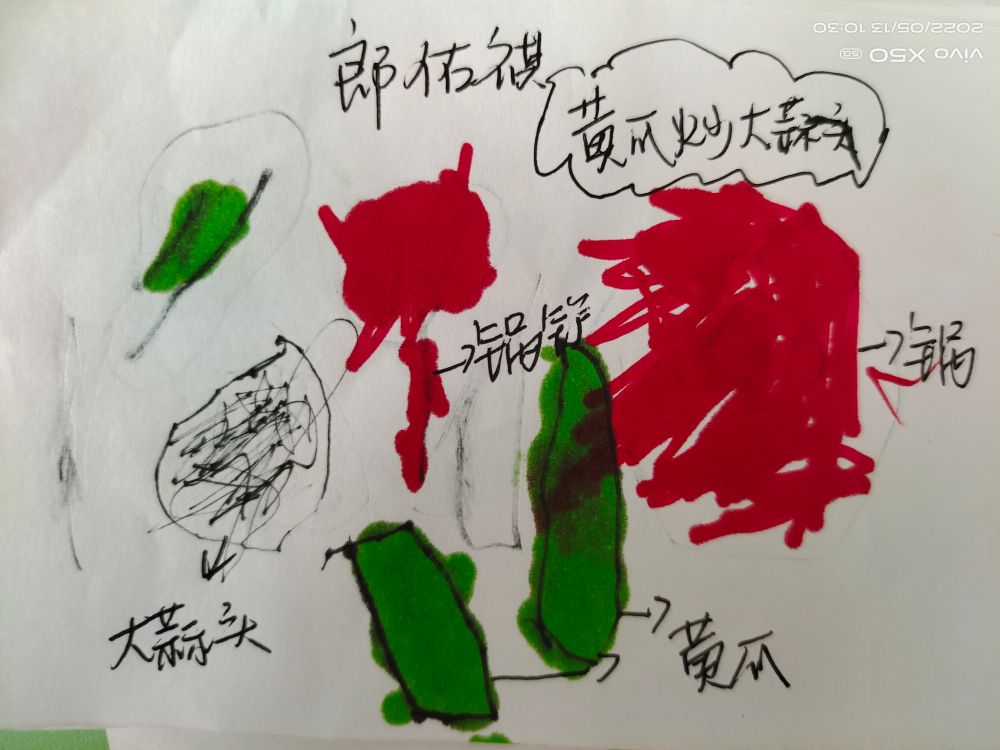 2022/05/13 10:30
vivo X50 5G
郎佑祺
黄瓜炒大蒜头
锅铲
锅
大蒜头
黄瓜